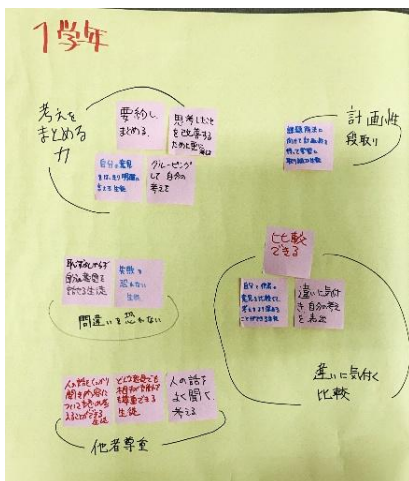 1学年
考えを
まとめる
力
要約し、
まとめる。
思考したこと
を改善する
ために
自分の意見
をはっきり明確に
言える生徒
グルーピング
して自分の
考えて
計画性
段取り
課題解決に
向けて計画性を
持って学習に
恥ずかしがらず
自分の意見を
話せる生徒
失敗を
恐れない
生徒
間違いを恐れない
比較
できる
自分と他者の
意見を比較して、
考えをより深める
ことができる生徒
違いに気付
き自分の考え
を表出
違いに気付く
比較
人の話をしっかり
聞き
ことができる
生徒
どんな意見でも
相手の
を尊重できる
生徒
人の話を
よく聞く。
考える
他者尊重